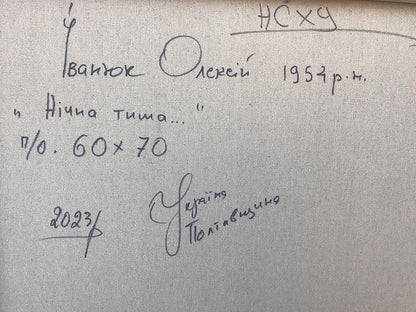 НСХУ
Іванюк Олексій 1954 р.н.
„Нічна тиша..."
п/о. 60х70
2023р
Україна
Полтавщина